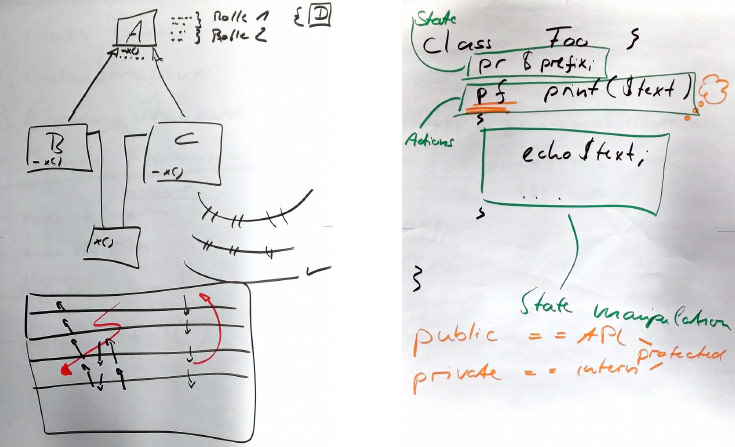 A
-x()
Rolle 1
Rolle 2
{ D
B
-x()
C
-x()
x()
State
class Foo {
pr $prefix;
pf print($text)
{
Actions
echo $text;
....
}
}
State manipulation
public == API
protected
private == intern